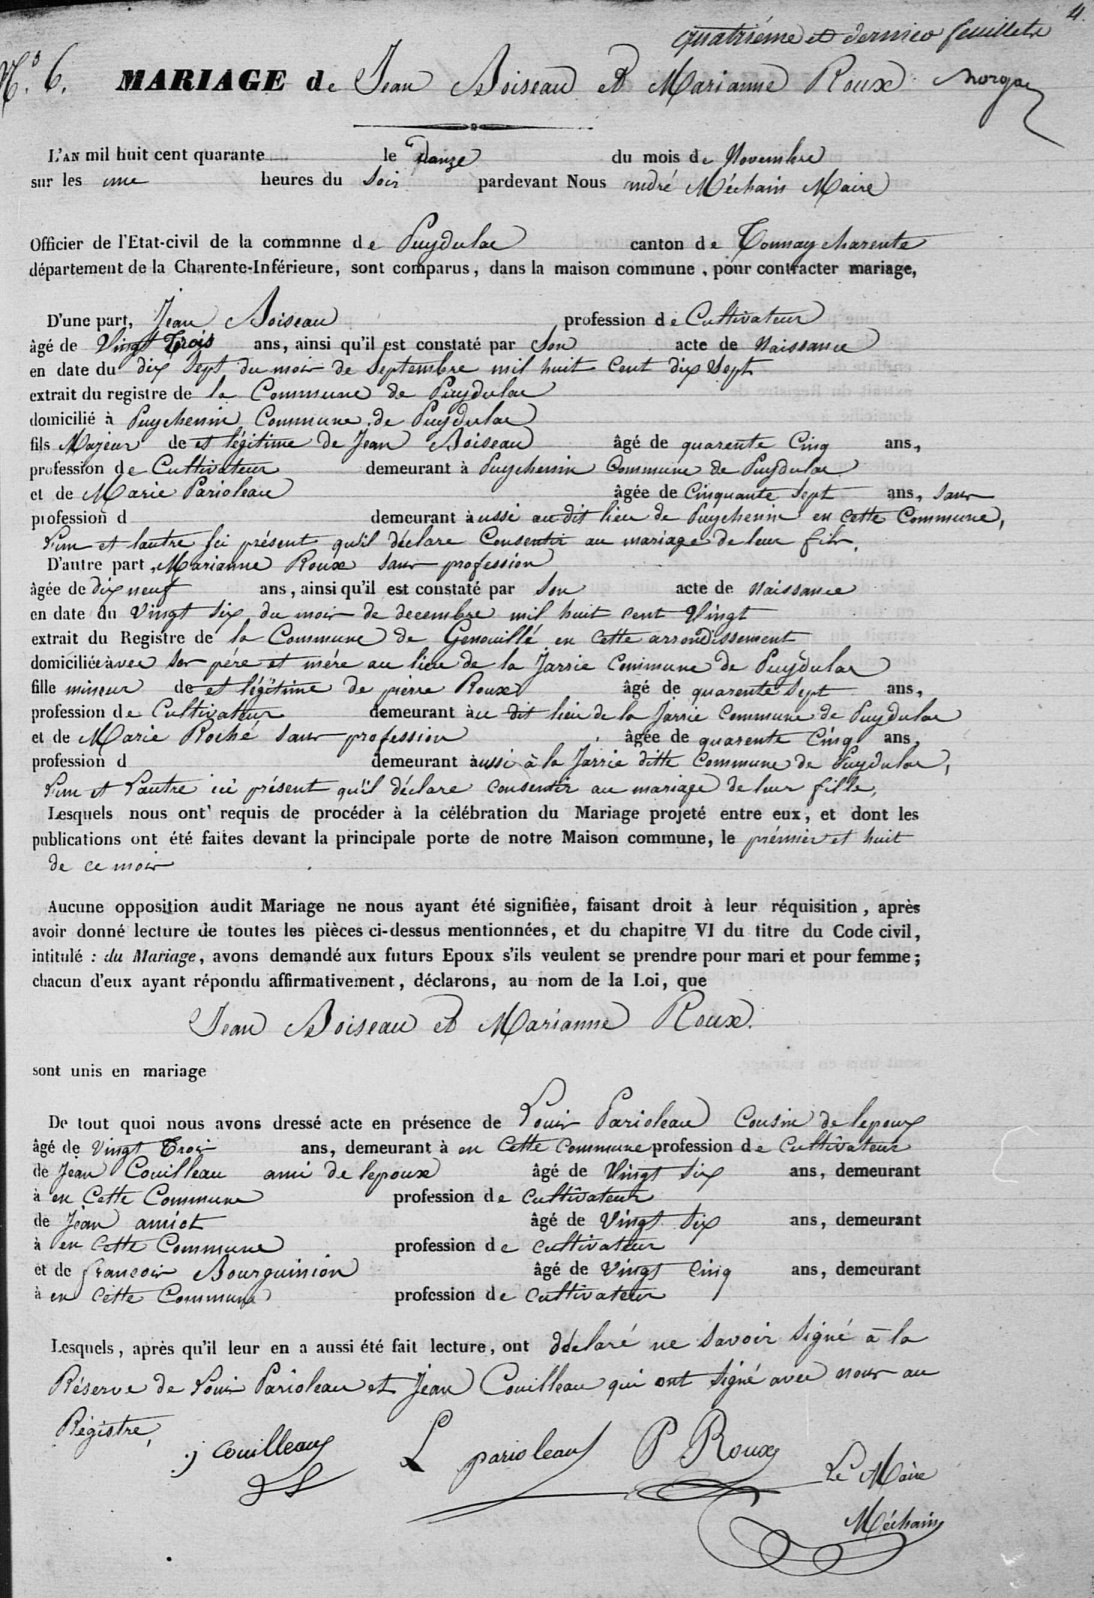 4.
quatriéme et dernier feuillets
N.º 6. MARIAGE de Jean Boiseau et Marianne Roux
L'AN mil huit cent quarante le onze du mois de Novembre
sur les une heures du soir pardevant Nous andré Méchain Maire
Officier de l'Etat-civil de la commnne de Puydulac canton de Tonnaycharente
département de la Charente-Inférieure, sont comparus, dans la maison commune, pour contracter mariage,
D'une part, Jean Boiseau profession de Cultivateur
âgé de Vingt Trois ans, ainsi qu'il est constaté par son acte de Naissance
en date du dix sept du mois de Septembre mil huit Cent dix Sept
extrait du registre de la Commune de Puydulac
domicilié à Puychenin Commune de Puydulac
fils Majeur de et légitime de Jean Boiseau âgé de quarente Cinq ans,
profession de Cultivateur demeurant à Puychenin Commune de Puydulac
et de Marie Parioleau âgée de Cinquante Sept ans, sans
profession d demeurant à aussi au dit lieu de Puychenin en cette Commune,
l'un et lautre ici présent qu'il déclare Consentir au mariage de leur fils.
D'autre part, Marianne Roux sans profession
âgée de dix neuf ans, ainsi qu'il est constaté par son acte de Naissance
en date du Vingt six du mois de decembre mil huit cent Vingt
extrait du Registre de la Commune de Genouillé en cette arrondissement
domiciliée avec ses pére et mére au lieu de la Jarrie Commune de Puydulac
fille mineur de et légitime de pierre Roux âgé de quarente sept ans,
profession de Cultivateur demeurant au dit lieu de la Jarrie Commune de Puydulac
et de Marie Roché sans profession âgée de quarente Cinq ans,
profession d demeurant aussi à la Jarrie ditte Commune de Puydulac,
l'un et l'autre ici présent qu'il déclare consentir au mariage de leur fille,
Lesquels nous ont requis de procéder à la célébration du Mariage projeté entre eux, et dont les
publications ont été faites devant la principale porte de notre Maison commune, le prémier et huit
de ce mois
Aucune opposition audit Mariage ne nous ayant été signifiée, faisant droit à leur réquisition, après
avoir donné lecture de toutes les pièces ci-dessus mentionnées, et du chapitre VI du titre du Code civil,
intitulé : du Mariage, avons demandé aux futurs Epoux s'ils veulent se prendre pour mari et pour femme ;
chacun d'eux ayant répondu affirmativement, déclarons, au nom de la Loi, que
Jean Boiseau et Marianne Roux.
sont unis en mariage
De tout quoi nous avons dressé acte en présence de Louis Parioleau Cousin de lepoux
âgé de vingt Trois ans, demeurant à en Cette Commune profession de Cultivateur
de Jean Couilleau ami de lepoux âgé de Vingt six ans, demeurant
à en Cette Commune profession de cultivateur
de Jean amiot âgé de Vingt Six ans, demeurant
à en cette Commune profession de cultivateur
et de francois Bourguinion âgé de Vingt Cinq ans, demeurant
à en cette Commune profession de cultivateur
Lesquels, après qu'il leur en a aussi été fait lecture, ont déclaré ne savoir signé à la
Réserve de Louis Parioleau et Jean Couilleau qui ont signé avec nous au
Régistre,
j couilleau L parioleau P Roux Le Maire
Méchain